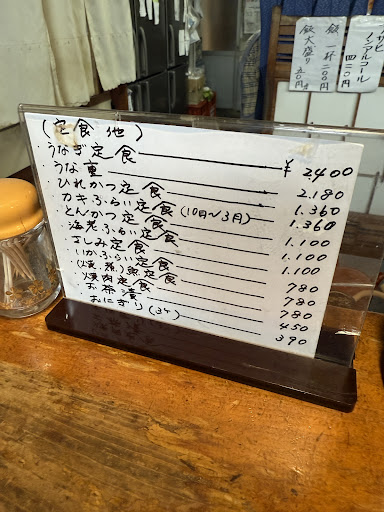 (定食 他)
うなぎ定食 ¥2400
うな重 2.180
ひれかつ定食 1.360
カキふらい定食(10月〜3月) 1.360
とんかつ定食 1.100
海老ふらい定食 1.100
さしみ定食 1.100
いかふらい定食 780
(焼.煮)魚定食 780
焼肉定食 780
お茶漬 450
おにぎり(3ケ) 390
ノンアルコール 四二〇
飯 一杯 二〇〇円
飯大盛り